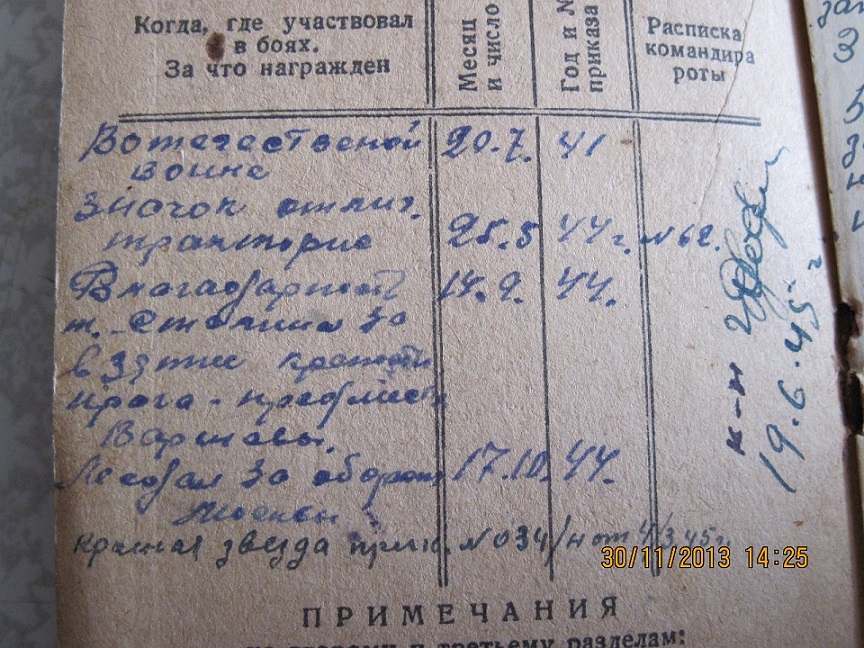 Когда, где участвовал
в боях.
За что награжден
Месяц
и число
Год и №
приказа
Расписка
командира
роты
В отечественой 20.7. 41
воине
Значок отлич.
тракторис 25.5 44 г. №62.
Благодарность 14.9. 44.
т. Сталина за
взятие крепости
прага - предместь
Варшавы.
Медал за оборону 17.10. 44.
Москвы
красная звезда прик. №034/н от 4/3 45 г.
к-н
19.6.45 г.
30/11/2013 14:25
ПРИМЕЧАНИЯ
и третьему разделам: